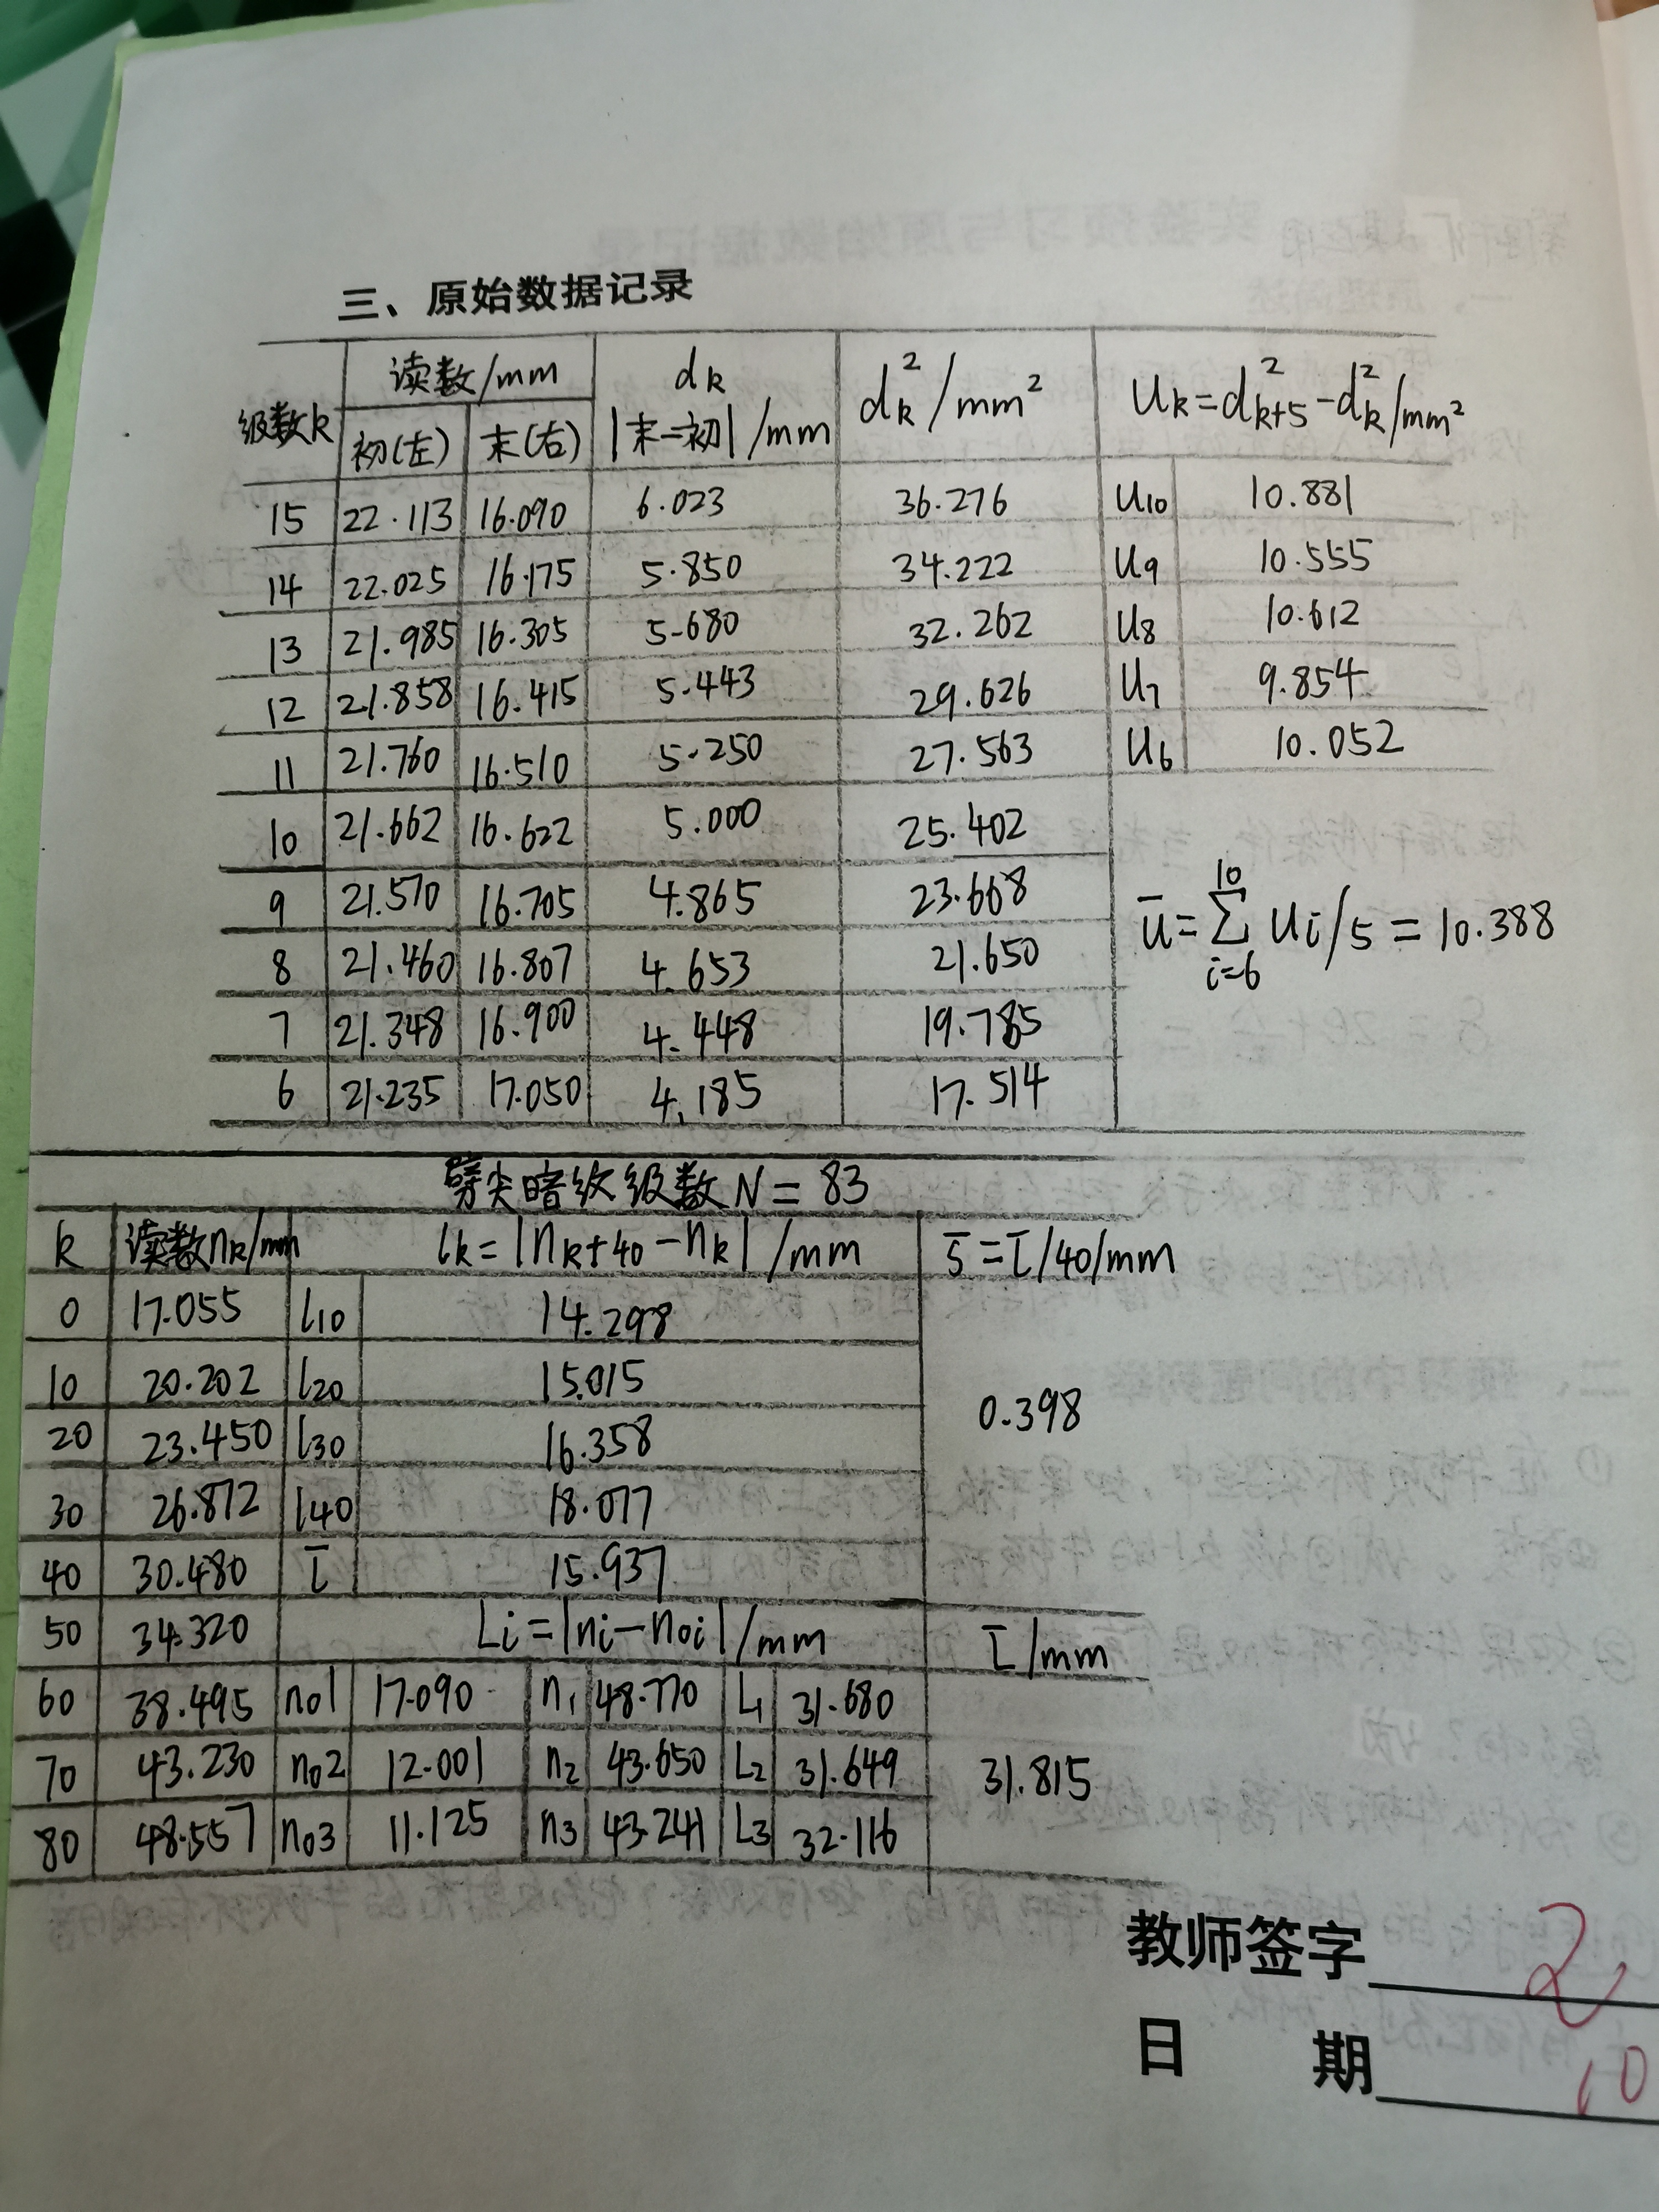 三、原始数据记录
级数k 读数/mm dk |末-初|/mm dk²/mm² Uk=d²k+5-d²k/mm²
初(左) 末(右)
15 22.113 16.090 6.023 36.276 U10 10.881
14 22.025 16.175 5.850 34.222 U9 10.555
13 21.985 16.305 5.680 32.262 U8 10.612
12 21.858 16.415 5.443 29.626 U7 9.854
11 21.760 16.510 5.250 27.563 U6 10.052
10 21.662 16.622 5.000 25.402
9 21.570 16.705 4.865 23.668 ū=∑Ui/5=10.388
10
i=6
8 21.460 16.807 4.653 21.650
7 21.348 16.900 4.448 19.785
6 21.235 17.050 4.185 17.514
劈尖暗纹级数N=83
k 读数nk/mm lk=|nk+40-nk|/mm s̄=l̄/40/mm
0 17.055 l10 14.298
10 20.202 l20 15.015
20 23.450 l30 16.358 0.398
30 26.872 l40 18.077
40 30.480 l̄ 15.937
50 34.320 Li=|ni-n0i|/mm L̄/mm
60 38.495 n01 17.090 n1 48.770 L1 31.680
70 43.230 n02 12.001 n2 43.650 L2 31.649 31.815
80 48.557 n03 11.125 n3 43.241 L3 32.116
教师签字
日 期 10